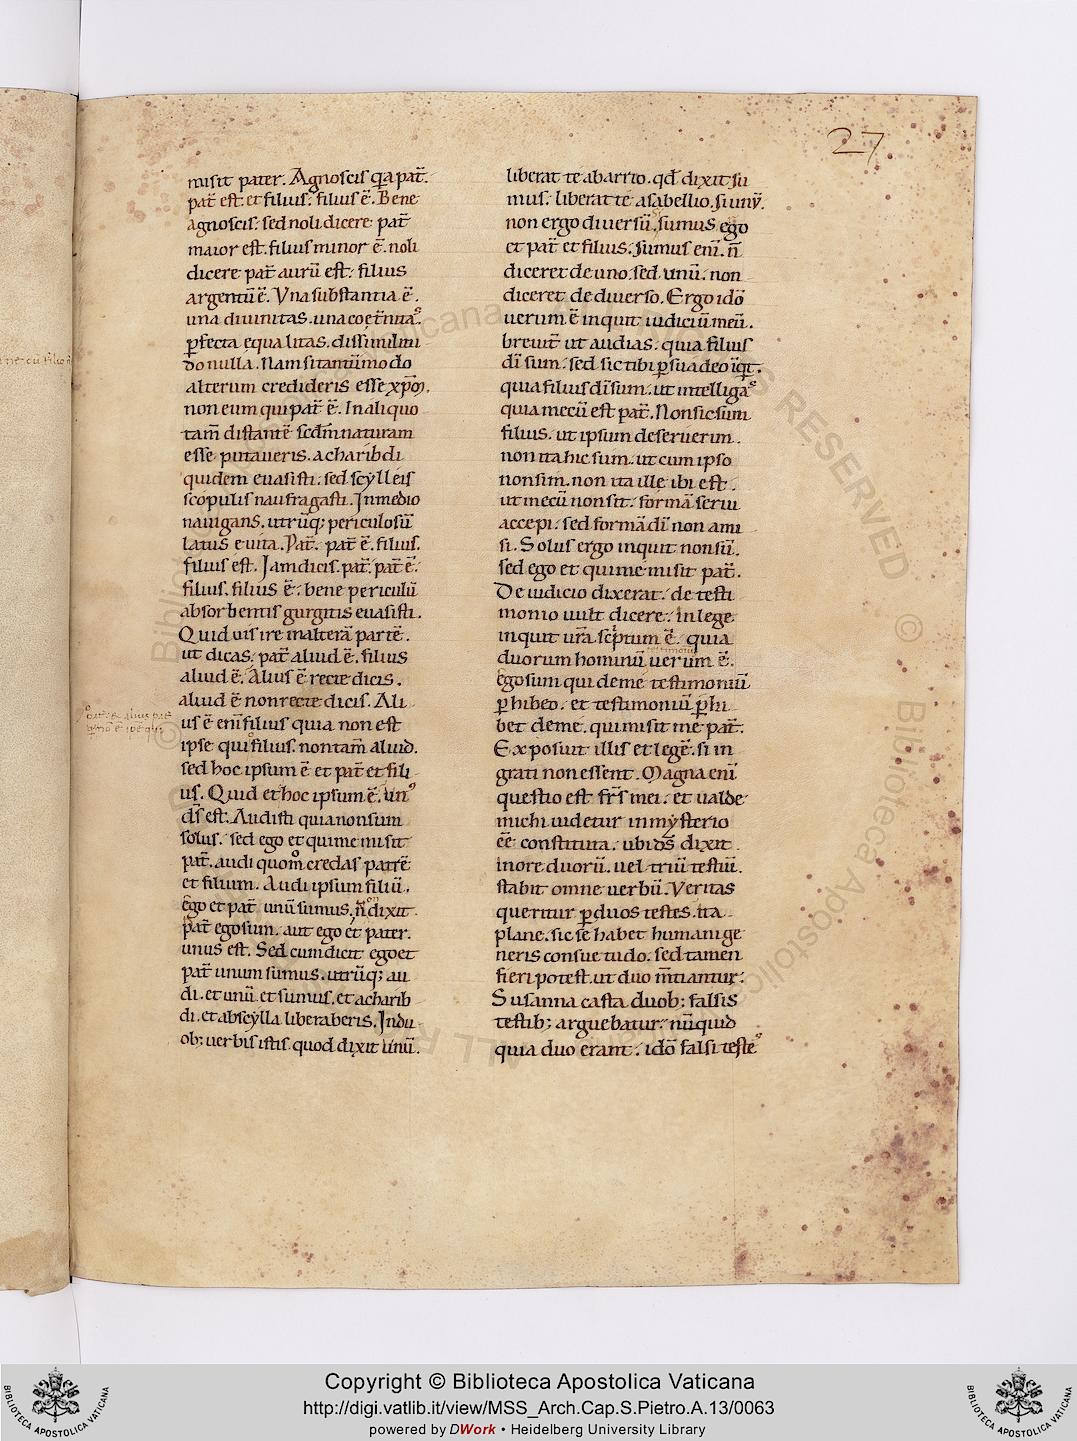 27
misit pater. Agnoscis q̄a pat̄.
pat̄ est. et filius. filius ē. Bene
agnoscis. sed noli dicere pat̄
maior est. filius minor ē. noli
dicere pat̄ aurū est. filius
argentū ē. Vna substantia ē.
una diuinitas. una coet̄nitaꝰ.
ꝑfecta equalitas. dissimilitu
do nulla. Nam si tantūmodo
alterum credideris esse xp̄m.
non eum qui pat̄ ē. In aliquo
tam̄ distante sedm̄ naturam
esse putaueris. a charibdi
quidem euasisti. sed scylleis
scopulis naufragasti. In medio
nauigans. utrūq; periculosū
latus euita. Pat̄. pat̄ ē. filius.
filius est. Iam dicis. pat̄. pat̄ ē.
filius. filius ē. bene periculū
absorbentis gurgitis euasisti.
Quid uis ire in alterā partē.
ut dicas. pat̄ aliud ē. filius
aliud ē. Alius ē recte dicis.
aliud ē non recte dicis. Ali
us ē eni filius quia non est
ipse qui filius. non tam̄ aliud.
sed hoc ipsum ē et pat̄ et fili
us. Quid et hoc ipsum ē. unꝰ
ds̄ est. Audisti quia non sum
solus. sed ego et qui me misit
pat̄. audi quom̊ credas patrē
et filium. Audi ipsum filiū.
ego et pat̄ unū sumus. n̄ dixit
pat̄ ego sum. aut ego et pater.
unus est. Sed cum dicit ego et
pat̄ unum sumus. utrūq; au
di. et unū. et sumus. et a charib
di. et a bscylla liberaberis. In du
ob; uerbis istis quod dixit unū.
liberat te ab arrio. qd̄ dixit su
mus. liberat te a sabellio. si unū.
non ergo diuersū. sumus ego
et pat̄ et filius. sumus eni. n̄
diceret de uno. sed unū. non
diceret de diuerso. Ergo idō
uerum ē inquit iudiciū meū.
breuit̄ ut audias. quia filius
dī sum. sed sic tibi ꝑsuadeo īqt.
quia filius dī sum. ut intelligaꝰ
quia mecū est pat̄. Non sic sum
filius. ut ipsum deseruerim.
non ita hic sum. ut cum ipso
non sim. non ita ille ibi est.
ut mecū non sit. formā serui
accepi. sed formā dī non ami
si. Solus ergo inquit non sū.
sed ego et qui me misit pat̄.
De iudicio dixerat. de testi
monio uult dicere. in lege
inquit ur̄a scptum ē. quia
testimoniū
duorum hominū uerum ē.
ego sum qui de me testimoniū
ꝑhibeo. et testimoniū ꝑhi
bet de me. qui misit me pat̄.
Exposuit illis et legē. si in
grati non essent. Magna eni
questio est fr̄s mei. et ualde
michi uidetur in mysterio
ēē constituta. ubi ds̄ dixit
in ore duorū. uel triū testiū.
stabit omne uerbū. Veritas
queritur ꝑ duos testes. ita
plane. sic se habet humani ge
neris consuetudo. sed tamen
fieri potest. ut duo m̄tiantur.
Susanna casta duob: falsis
testib; arguebatur. nūquid
quia duo erant. idō falsi testeꝰ
Copyright © Biblioteca Apostolica Vaticana
http://digi.vatlib.it/view/MSS_Arch.Cap.S.Pietro.A.13/0063
powered by DWork • Heidelberg University Library
BIBLIOTECA APOSTOLICA VATICANA
BIBLIOTECA APOSTOLICA VATICANA
© Biblioteca Apostolica Vaticana ALL RIGHTS RESERVED